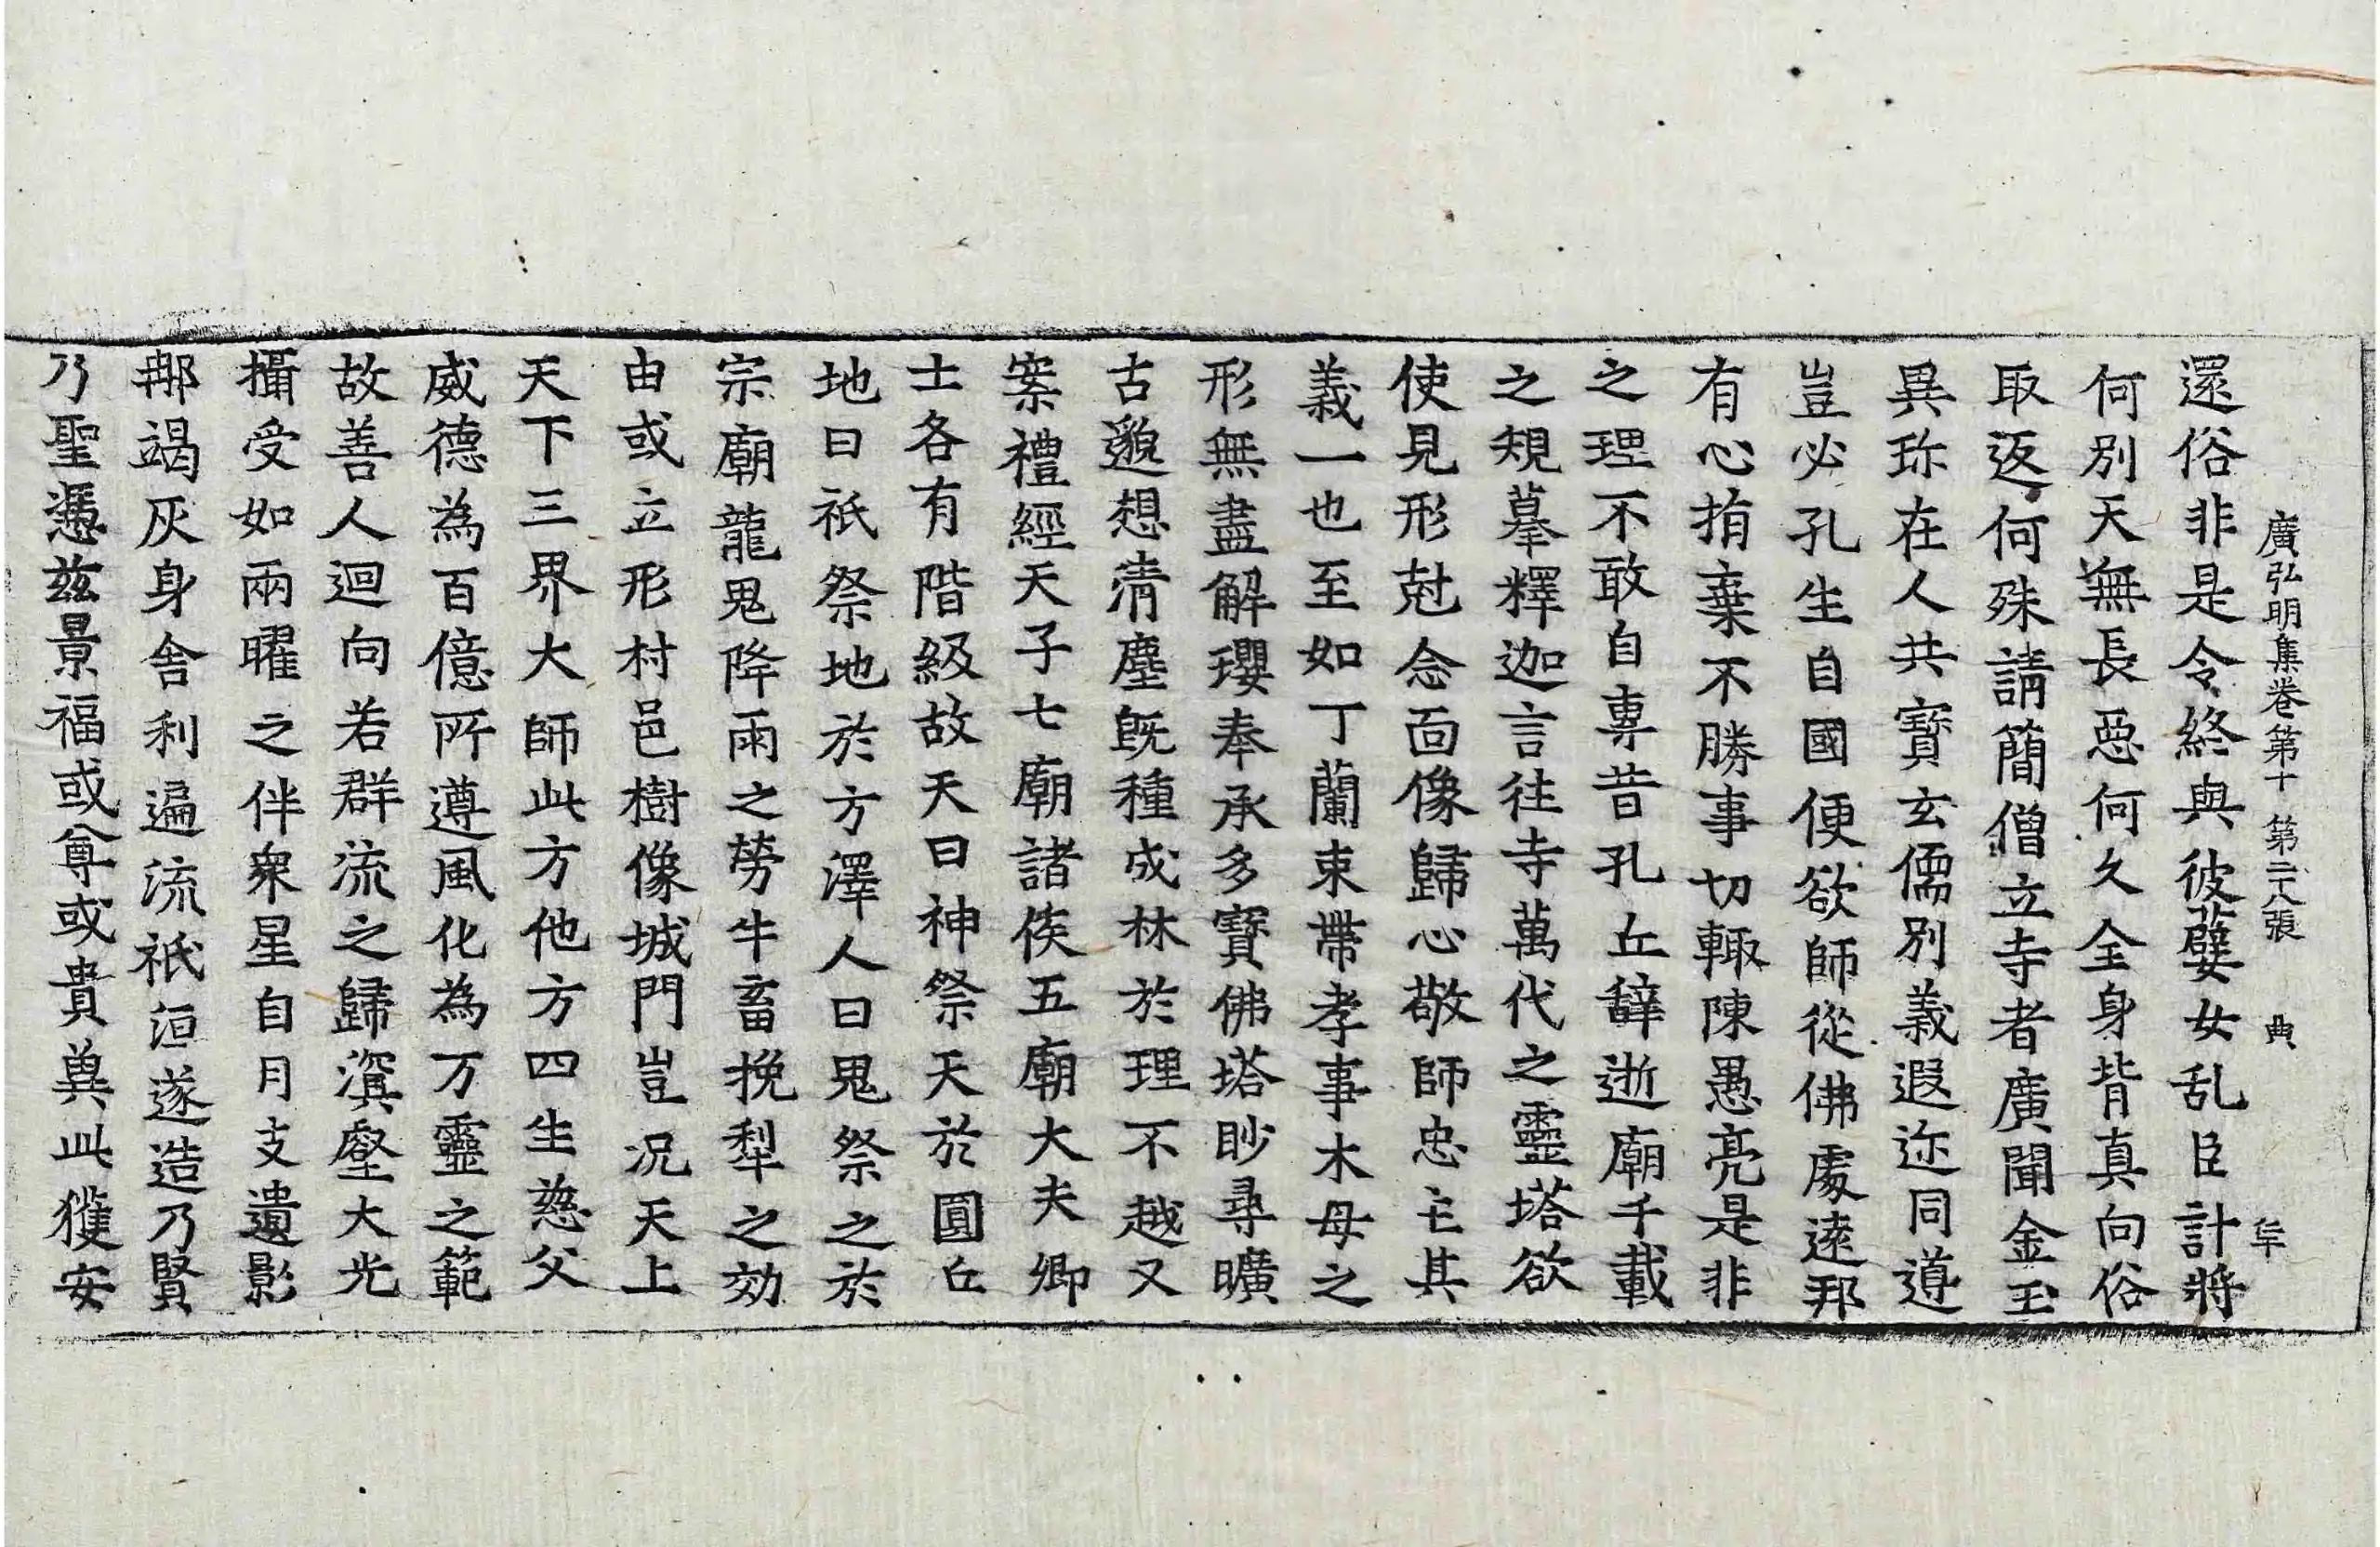 廣弘明集卷第十 第二十八張 典
還俗非是令終與彼嬖女乱臣計將
何別天無長惡何久全身背真向俗
取返何殊請簡僧立寺者廣聞金玉
異珎在人共寳玄儒別義遐迩同遵
豈必孔生自國便欲師從佛處逺邦
有心捐棄不勝事切輙陳愚亮是非
之理不敢自專昔孔丘辭逝廟千載
之規摹釋迦言往寺萬代之靈塔欲
使見形尅念面像歸心敬師忠主其
義一也至如丁蘭束帶孝事木母之
形無盡解瓔奉承多寳佛塔眇尋曠
古邈想清塵旣種成林於理不越又
案禮經天子七廟諸侯五廟大夫卿
士各有階級故天曰神祭天於圓丘
地曰祇祭地於方澤人曰鬼祭之於
宗廟龍鬼降雨之勞牛畜挽犁之効
由或立形村邑樹像城門豈况天上
天下三界大師此方他方四生慈父
威德為百億所遵風化為万靈之範
故善人迴向若群流之歸溟壑大光
攝受如兩曜之伴衆星自月支遺影
那竭灰身舍利遍流祇洹遂造乃賢
乃聖憑兹景福或尊或貴奠此獲安